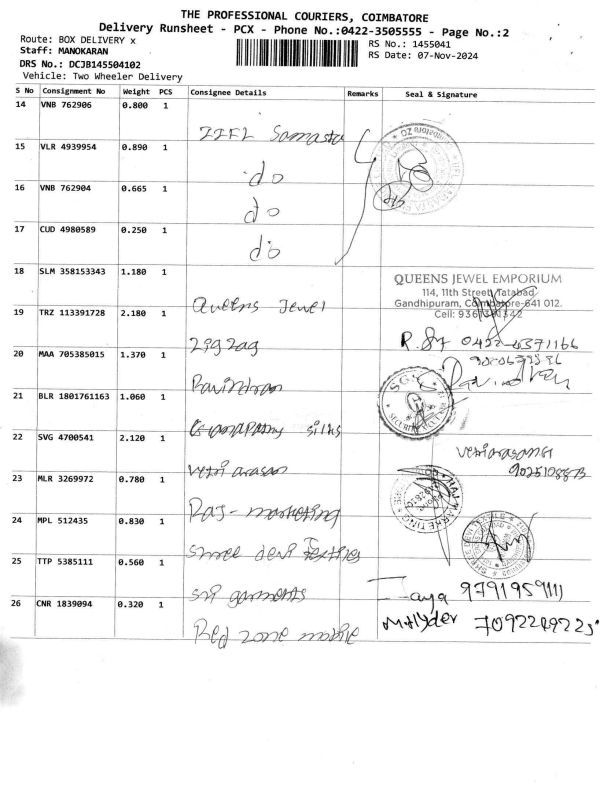 THE PROFESSIONAL COURIERS, COIMBATORE
Delivery Runsheet - PCX - Phone No.:0422-3505555 - Page No.:2
Route: BOX DELIVERY x
RS No.: 1455041
Staff: MANOKARAN
RS Date: 07-Nov-2024
DRS No.: DCJB145504102
Vehicle: Two Wheeler Delivery
S No Consignment No Weight PCS Consignee Details Remarks Seal & Signature
14 VNB 762906 0.800 1
IIFL Samasta
15 VLR 4939954 0.890 1
do
16 VNB 762904 0.665 1
do
17 CUD 4980589 0.250 1
do
18 SLM 358153343 1.180 1
QUEENS JEWEL EMPORIUM
114, 11th Street, Tatabad
Gandhipuram, Coimbatore-641 012.
Queens Jewel
19 TRZ 113391728 2.180 1
Zigzag
20 MAA 705385015 1.370 1
Ravindran
21 BLR 1801761163 1.060 1
Ganapathy silks
22 SVG 4700541 2.120 1
vetri arasan
23 MLR 3269972 0.780 1
Raj-marketing
24 MPL 512435 0.830 1
shree devi Textiles
25 TTP 5385111 0.560 1
sri garments
26 CNR 1839094 0.320 1
Red zone mobile